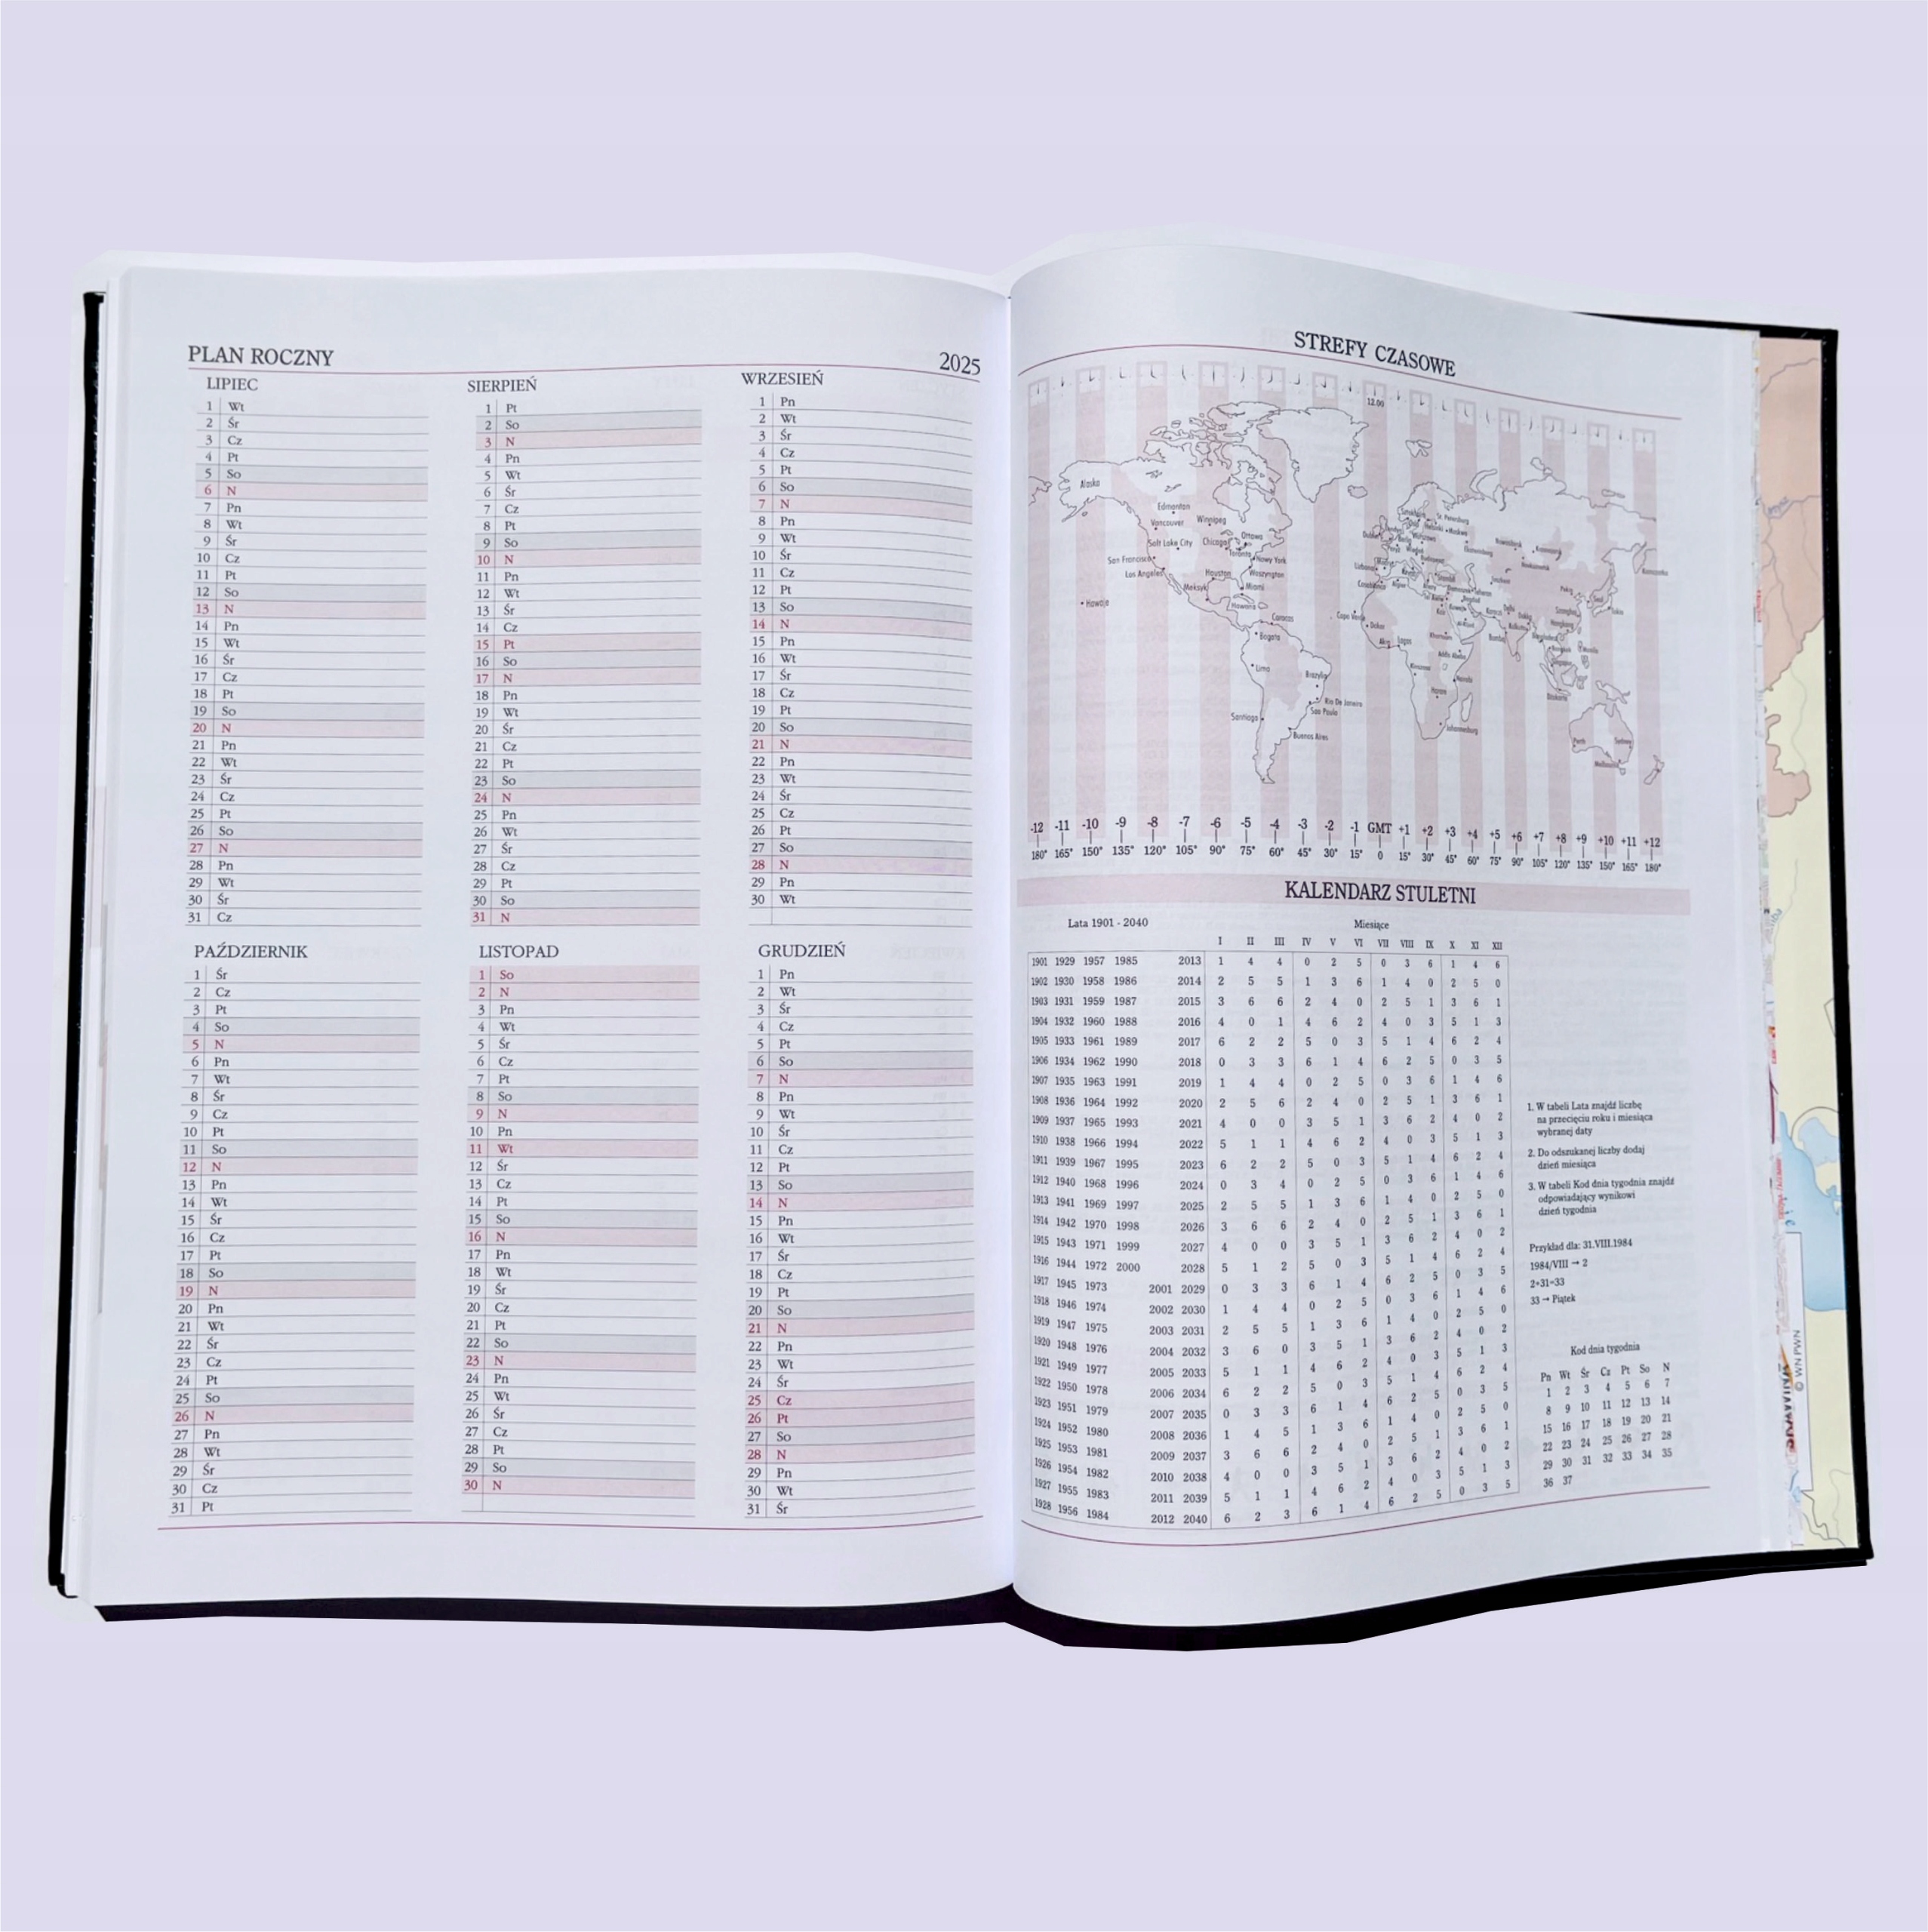 PLAN ROCZNY
2025
LIPIEC
1 Wt
2 Śr
3 Cz
4 Pt
5 So
6 N
7 Pn
8 Wt
9 Śr
10 Cz
11 Pt
12 So
13 N
14 Pn
15 Wt
16 Śr
17 Cz
18 Pt
19 So
20 N
21 Pn
22 Wt
23 Śr
24 Cz
25 Pt
26 So
27 N
28 Pn
29 Wt
30 Śr
31 Cz
SIERPIEŃ
1 Pt
2 So
3 N
4 Pn
5 Wt
6 Śr
7 Cz
8 Pt
9 So
10 N
11 Pn
12 Wt
13 Śr
14 Cz
15 Pt
16 So
17 N
18 Pn
19 Wt
20 Śr
21 Cz
22 Pt
23 So
24 N
25 Pn
26 Wt
27 Śr
28 Cz
29 Pt
30 So
31 N
WRZESIEŃ
1 Pn
2 Wt
3 Śr
4 Cz
5 Pt
6 So
7 N
8 Pn
9 Wt
10 Śr
11 Cz
12 Pt
13 So
14 N
15 Pn
16 Wt
17 Śr
18 Cz
19 Pt
20 So
21 N
22 Pn
23 Wt
24 Śr
25 Cz
26 Pt
27 So
28 N
29 Pn
30 Wt
PAŹDZIERNIK
1 Śr
2 Cz
3 Pt
4 So
5 N
6 Pn
7 Wt
8 Śr
9 Cz
10 Pt
11 So
12 N
13 Pn
14 Wt
15 Śr
16 Cz
17 Pt
18 So
19 N
20 Pn
21 Wt
22 Śr
23 Cz
24 Pt
25 So
26 N
27 Pn
28 Wt
29 Śr
30 Cz
31 Pt
LISTOPAD
1 So
2 N
3 Pn
4 Wt
5 Śr
6 Cz
7 Pt
8 So
9 N
10 Pn
11 Wt
12 Śr
13 Cz
14 Pt
15 So
16 N
17 Pn
18 Wt
19 Śr
20 Cz
21 Pt
22 So
23 N
24 Pn
25 Wt
26 Śr
27 Cz
28 Pt
29 So
30 N
GRUDZIEŃ
1 Pn
2 Wt
3 Śr
4 Cz
5 Pt
6 So
7 N
8 Pn
9 Wt
10 Śr
11 Cz
12 Pt
13 So
14 N
15 Pn
16 Wt
17 Śr
18 Cz
19 Pt
20 So
21 N
22 Pn
23 Wt
24 Śr
25 Cz
26 Pt
27 So
28 N
29 Pn
30 Wt
31 Śr
STREFY CZASOWE
12.00
Alaska
Edmonton
Vancouver Winnipeg
Ottawa
Salt Lake City Chicago
Toronto
San Francisco Nowy York
Los Angeles Houston Waszyngton
Meksyk Miami
Hawaje Hawana
Caracas
Bogota
Lima
Brazylia
Rio De Janeiro
Sao Paulo
Santiago
Buenos Aires
St. Petersburg
Moskwa
Warszawa
Casablanca
Dakar
Lagos
Addis Abeba
Nairobi
Johannesburg
Perth
Melbourne
-12 -11 -10 -9 -8 -7 -6 -5 -4 -3 -2 -1 GMT +1 +2 +3 +4 +5 +6 +7 +8 +9 +10 +11 +12
180° 165° 150° 135° 120° 105° 90° 75° 60° 45° 30° 15° 0 15° 30° 45° 60° 75° 90° 105° 120° 135° 150° 165° 180°
KALENDARZ STULETNI
Lata 1901 - 2040
Miesiące
I II III IV V VI VII VIII IX X XI XII
1901 1929 1957 1985 2013 1 4 4 0 2 5 0 3 6 1 4 6
1902 1930 1958 1986 2014 2 5 5 1 3 6 1 4 0 2 5 0
1903 1931 1959 1987 2015 3 6 6 2 4 0 2 5 1 3 6 1
1904 1932 1960 1988 2016 4 0 1 4 6 2 4 0 3 5 1 3
1905 1933 1961 1989 2017 6 2 2 5 0 3 5 1 4 6 2 4
1906 1934 1962 1990 2018 0 3 3 6 1 4 6 2 5 0 3 5
1907 1935 1963 1991 2019 1 4 4 0 2 5 0 3 6 1 4 6
1908 1936 1964 1992 2020 2 5 6 2 4 0 2 5 1 3 6 1
1909 1937 1965 1993 2021 4 0 0 3 5 1 3 6 2 4 0 2
1910 1938 1966 1994 2022 5 1 1 4 6 2 4 0 3 5 1 3
1911 1939 1967 1995 2023 6 2 2 5 0 3 5 1 4 6 2 4
1912 1940 1968 1996 2024 0 3 4 0 2 5 0 3 6 1 4 6
1913 1941 1969 1997 2025 2 5 5 1 3 6 1 4 0 2 5 0
1914 1942 1970 1998 2026 3 6 6 2 4 0 2 5 1 3 6 1
1915 1943 1971 1999 2027 4 0 0 3 5 1 3 6 2 4 0 2
1916 1944 1972 2000 2028 5 1 2 5 0 3 5 1 4 6 2 4
1917 1945 1973 2001 2029 0 3 3 6 1 4 6 2 5 0 3 5
1918 1946 1974 2002 2030 1 4 4 0 2 5 0 3 6 1 4 6
1919 1947 1975 2003 2031 2 5 5 1 3 6 1 4 0 2 5 0
1920 1948 1976 2004 2032 3 6 0 3 5 1 3 6 2 4 0 2
1921 1949 1977 2005 2033 5 1 1 4 6 2 4 0 3 5 1 3
1922 1950 1978 2006 2034 6 2 2 5 0 3 5 1 4 6 2 4
1923 1951 1979 2007 2035 0 3 3 6 1 4 6 2 5 0 3 5
1924 1952 1980 2008 2036 1 4 5 1 3 6 1 4 0 2 5 0
1925 1953 1981 2009 2037 3 6 6 2 4 0 2 5 1 3 6 1
1926 1954 1982 2010 2038 4 0 0 3 5 1 3 6 2 4 0 2
1927 1955 1983 2011 2039 5 1 1 4 6 2 4 0 3 5 1 3
1928 1956 1984 2012 2040 6 2 3 6 1 4 6 2 5 0 3 5
1. W tabeli Lata znajdź liczbę
na przecięciu roku i miesiąca
wybranej daty
2. Do odszukanej liczby dodaj
dzień miesiąca
3. W tabeli Kod dnia tygodnia znajdź
odpowiadający wynikowi
dzień tygodnia
Przykład dla: 31.VIII.1984
1984/VIII → 2
2+31=33
33 → Piątek
Kod dnia tygodnia
Pn Wt Śr Cz Pt So N
1 2 3 4 5 6 7
8 9 10 11 12 13 14
15 16 17 18 19 20 21
22 23 24 25 26 27 28
29 30 31 32 33 34 35
36 37
© WN PWN